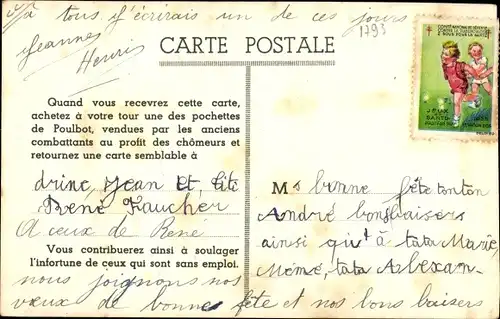 A tous j'écrirais un de ces jours
Jeannes
Henris
1793
CARTE POSTALE
Quand vous recevrez cette carte,
achetez à votre tour une des pochettes
de Poulbot, vendues par les anciens
combattants au profit des chômeurs et
retournez une carte semblable à
drine, Jean et, tite
René Faucher
A ceux de René
Vous contribuerez ainsi à soulager
l'infortune de ceux qui sont sans emploi.
Ms bonne fête tonton
André bons baisers
ainsi qu'à tata Marie,
Mémé, tata
nous joignons nos
vœux de bonne fête et nos bons baisers
JEUX
SANTÉ